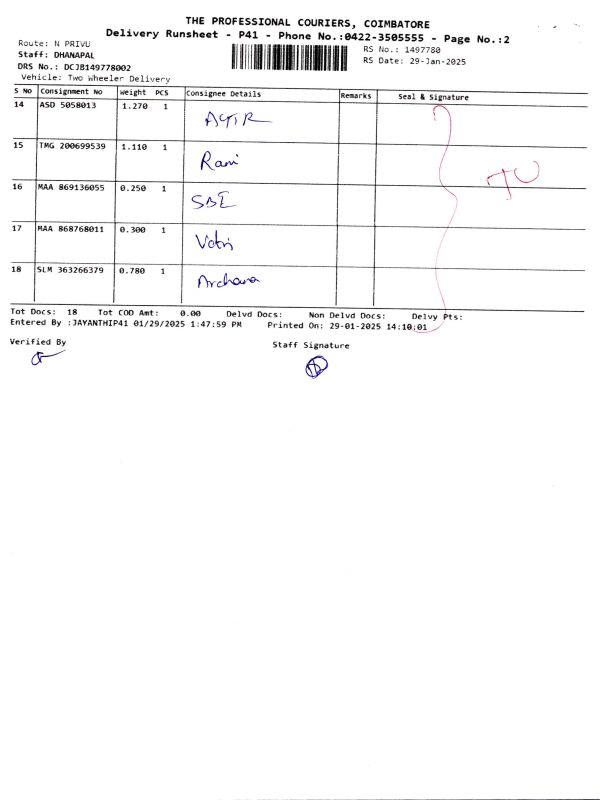 THE PROFESSIONAL COURIERS, COIMBATORE
Delivery Runsheet - P41 - Phone No.:0422-3505555 - Page No.:2
Route: N PRIVU
Staff: DHANAPAL
DRS No.: DCJB149778002
Vehicle: Two Wheeler Delivery
RS No.: 1497780
RS Date: 29-Jan-2025
S No Consignment No Weight PCS Consignee Details Remarks Seal & Signature
14 ASD 5058013 1.270 1
15 TMG 200699539 1.110 1 Rani
16 MAA 869136055 0.250 1 SBE
17 MAA 868768011 0.300 1 Vetri
18 SLM 363266379 0.780 1 Archana
Tot Docs: 18 Tot COD Amt: 0.00 Delvd Docs: Non Delvd Docs: Delvy Pts:
Entered By :JAYANTHIP41 01/29/2025 1:47:59 PM Printed On: 29-01-2025 14:10:01
Verified By
Staff Signature